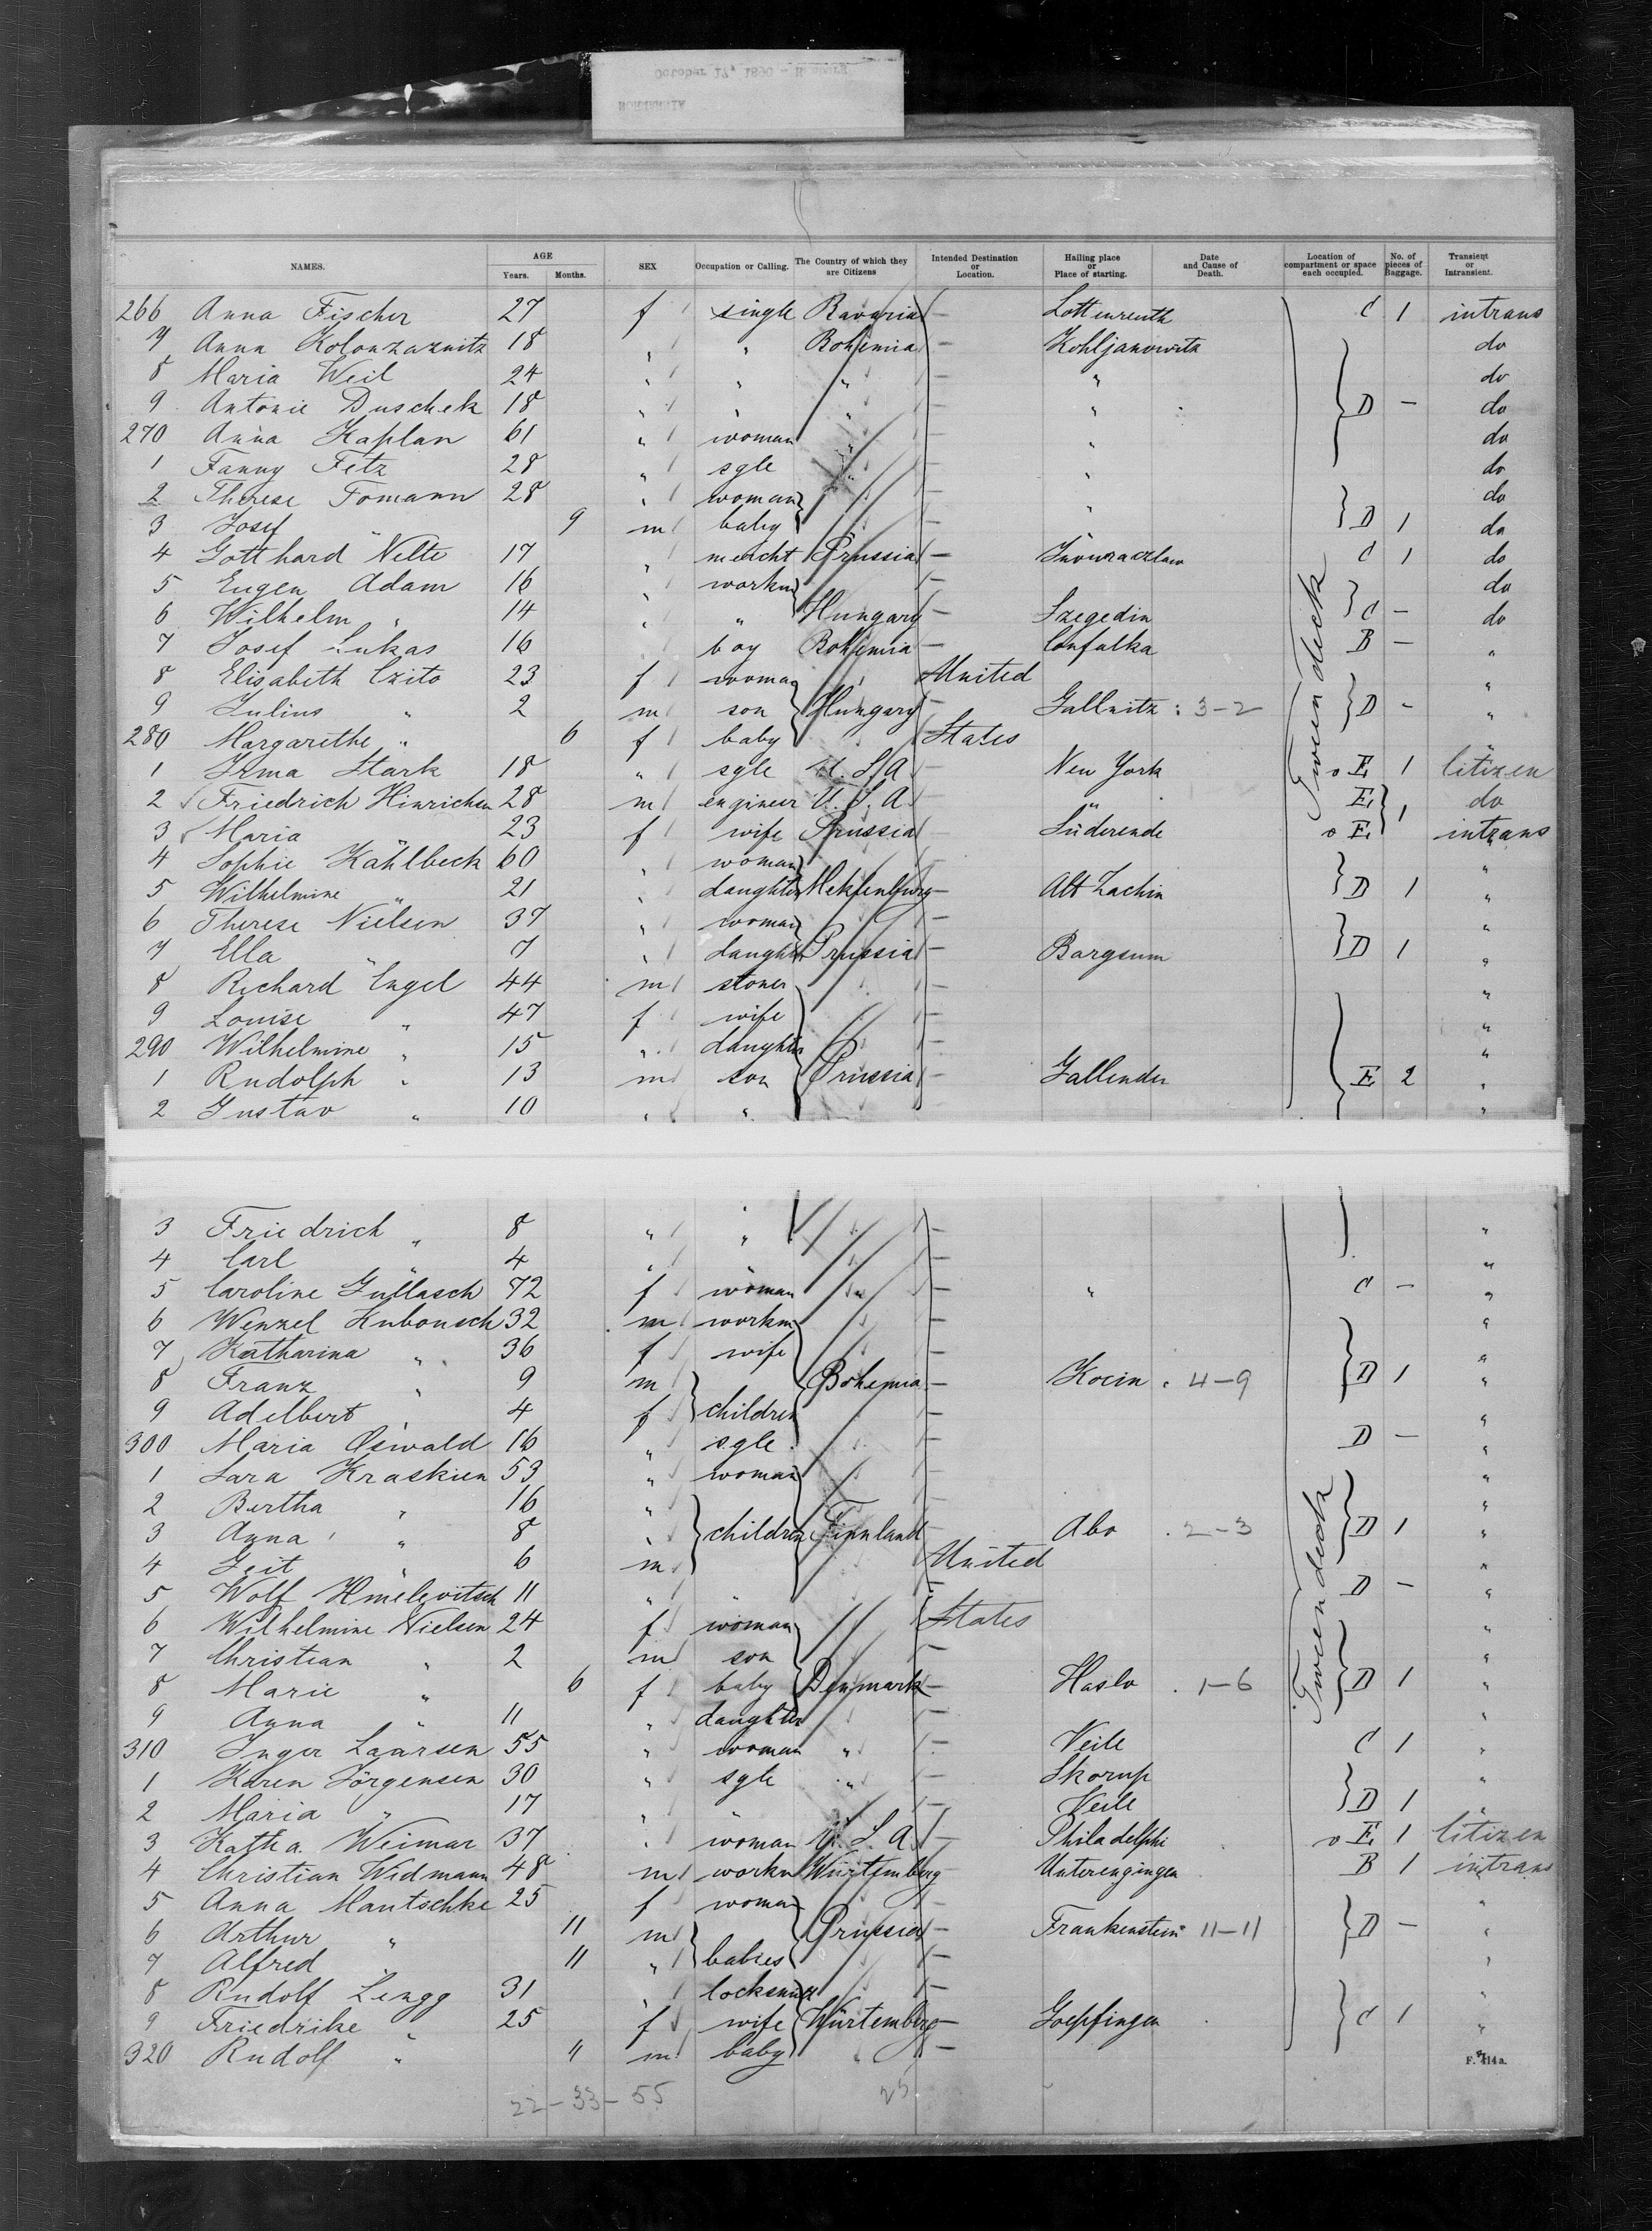 October 17, 1890 - Hamburg
NORMANNIA
NAMES. AGE Years. Months. SEX Occupation or Calling. The Country of which they are Citizens Intended Destination or Location. Hailing place or Place of starting. Date and Cause of Death. Location of compartment or space each occupied. No. of pieces of Baggage. Transient or Intransient.
266 Anna Fischer 27 f single Bavaria — Lottenreuth C 1 intrans
7 Anna Kolonzaznitz 18 " " Bohemia — Kohljanowitz do
8 Maria Weil 24 " " " — " do
9 Antonie Duschek 18 " " " — " D — do
270 Anna Kaplan 61 " woman " — " do
1 Fanny Fetz 28 " sgle " — " do
2 Therese Tomann 28 " woman — do
3 Josef " 9 m baby — " D 1 do
4 Gotthard Nelte 17 " mercht Prussia — Inowraczlaw C 1 do
5 Eugen Adam 16 " workm — do
6 Wilhelm " 14 " " Hungary — Szegedin C — do
7 Josef Lukas 16 boy Bohemia — Confalka B — "
8 Elisabeth Czito 23 f woman United "
9 Julius " 2 m son Hungary — Gallnitz : 3-2 D - "
280 Margarethe " 6 f baby States "
1 Irma Stark 18 " sgle U.S.A — New York o E 1 Citizen
2 Friedrich Hinrichsen 28 m engineer U.S.A. — " E 1 do
3 Maria 23 f wife Prussia — Süderende o E intrans
4 Sophie Kählbeck 60 " woman — "
5 Wilhelmine " 21 " daughter Meklenburg — Alt Zachin D 1 "
6 Therese Nielsen 37 " woman — "
7 Ella " 7 " daughter Prussia — Bargsum D 1 "
8 Richard Engel 44 m stoner — "
9 Louise " 47 f wife — "
290 Wilhelmine " 15 " daughter — "
1 Rudolph " 13 m son Prussia — Gallender E 2 "
2 Gustav " 10 " " — "
Tween deck
3 Friedrich " 8 " " — "
4 Carl " 4 " — "
5 Caroline Gullasch 72 f woman " — " C — "
6 Wenzel Kubonsch 32 m workm — "
7 Katharina " 36 f wife — "
8 Franz " 9 m Bohemia — Kocin . 4-9 D 1 "
9 Adelbert " 4 f children — "
300 Maria Oswald 16 " sgle — D — "
1 Sara Kraskien 53 " woman — "
2 Bertha " 16 " — "
3 Anna " 8 " children Finnland — Abo . 2-3 D 1 "
4 Zeit " 6 m United "
5 Wolf Hmelewitsch 11 " " — D — "
6 Wilhelmine Nielsen 24 f woman States "
7 Christian " 2 m son — "
8 Marie " 6 f baby Denmark — Haslo . 1-6 D 1 "
9 Anna " 11 " daughter — "
310 Inger Laursen 55 " woman " — Veile C 1 "
1 Karen Jörgensen 30 " sgle " — Skorup "
2 Maria " 17 " — Veile D 1 "
3 Katha Weimar 37 " woman U.S.A. — Philadelphi o E 1 Citizen
4 Christian Widmann 48 m workm Würtemberg Unterengingen B 1 intrans
5 Anna Mantschke 25 f woman "
6 Arthur " 11 m Prussia — Frankenstein 11-11 D — "
7 Alfred " 11 " babies — "
8 Rudolf Lengg 31 " locksmith — "
9 Friedrike " 25 f wife Würtemberg — Goepfingen C 1 "
320 Rudolf " 11 m baby " — "
Tween deck
F. 414a.
22-33-55 25